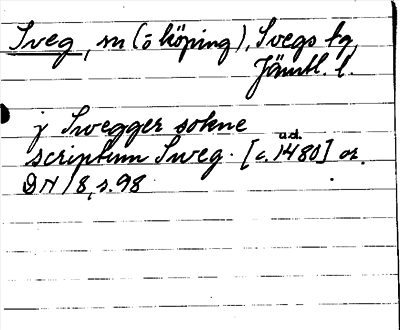 Sveg, sn (ö köping), Svegs tg,
Jämtl. l.
j Swegger sokne
u.d.
scriptum Sweg. [c. 1480] or.
DN 18, s. 98